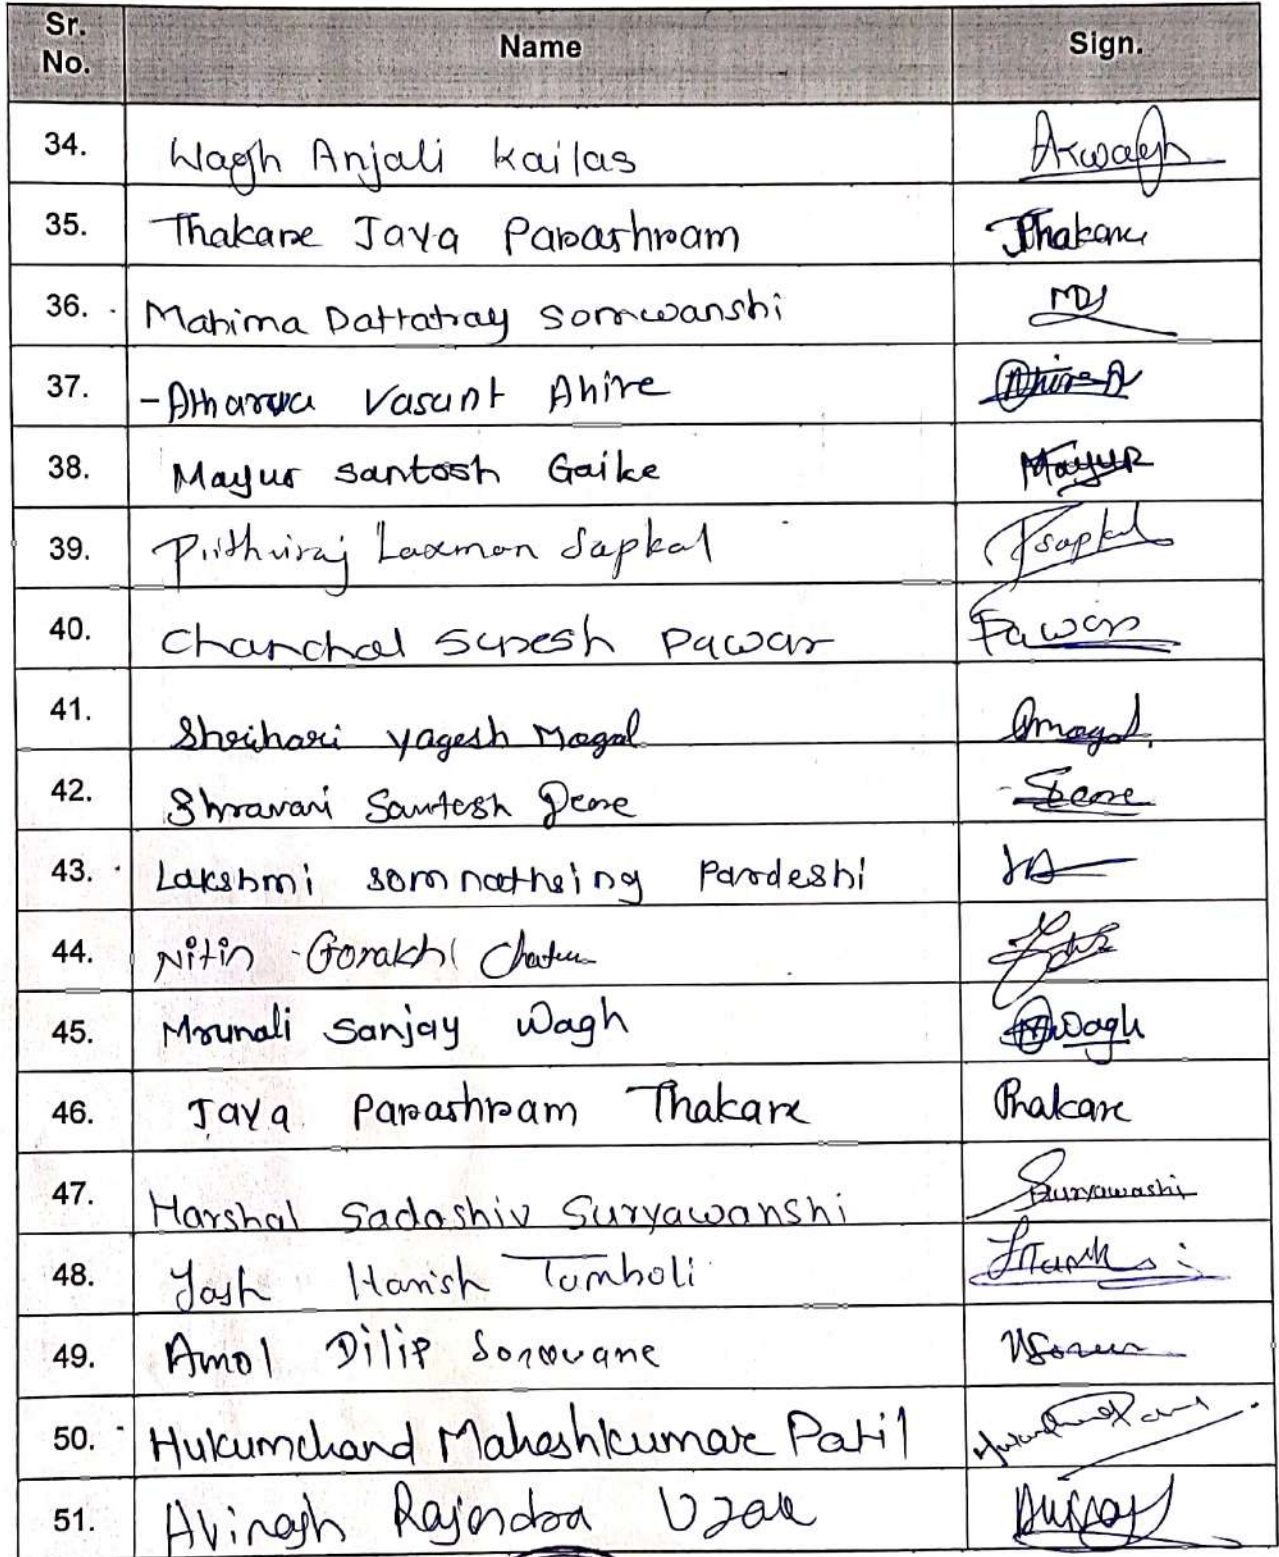 Sr. No. Name Sign.
34. Wagh Anjali Kailas AKwagh
35. Thakare Jaya Parashram JThakare
36. Mahima Dattatray Somwanshi MDS
37. Atharva Vasant Ahire Ahire A
38. Mayur Santosh Gaike Mayur
39. Prithviraj Laxman Sapkal PSapkal
40. Chanchal Suresh Pawar Pawar
41. Shrihari Yagesh Mogal
42. Shravani Santosh Deore Deore
43. Lakshmi Somnathsing Pardeshi
44. Nitin Gorakh
45. Mrunali Sanjay Wagh Wagh
46. Jaya Parashram Thakare
47. Harshal Sadashiv Suryawanshi Suryawashi
48. Yash Harish Tamboli
49. Amol Dilip Sonawane
50. Hukumchand Maheshkumar Patil
51. Avinash Rajendra